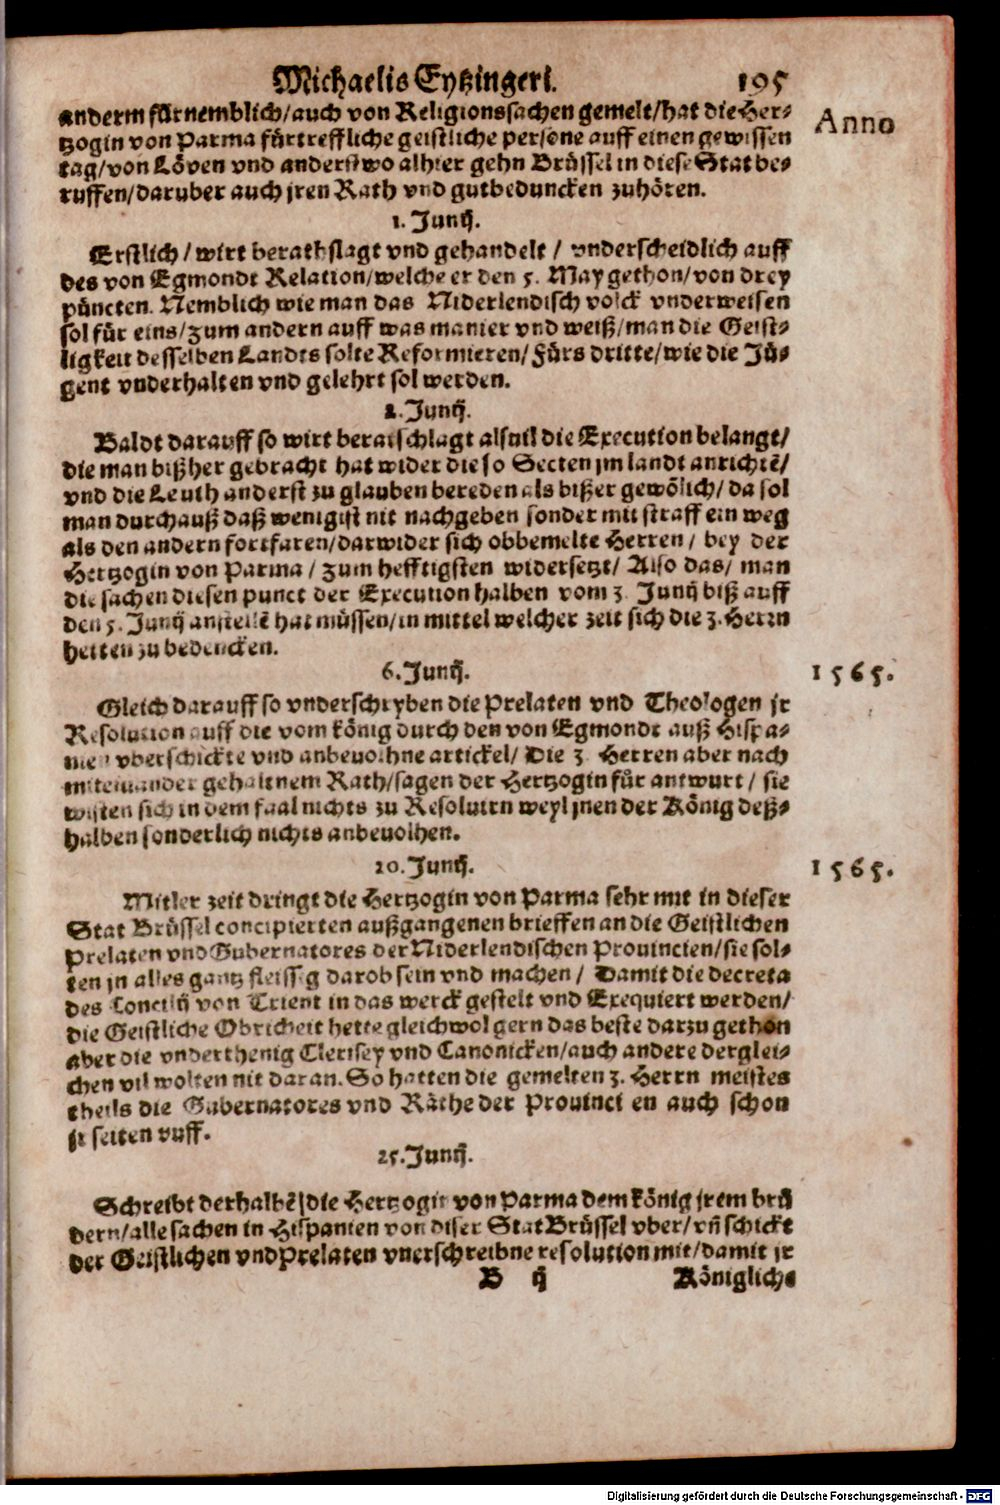 Michaelis Eytzingeri. 195
anderm fürnemblich/auch von Religionssachen gemelt/hat die Her⸗
tzogin von Parma fürtreffliche geistliche persone auff einen gewissen
Anno
tag/von Löven vnd anderstwo alhier gehn Brüssel in diese Stat be⸗
ruffen/daruber auch jren Rath vnd gutbeduncken zuhören.
1. Junij.
Erstlich / wirt berathslagt vnd gehandelt / vnderscheidlich auff
des von Egmondt Relation/welche er den 5. May gethon/von drey
püncten. Nemblich wie man das Niderlendisch volck vnderweisen
sol für eins/zum andern auff was manier vnd weiß/man die Geist⸗
ligkeit desselben Landts solte Reformieren/ Fürs dritte/wie die Jü⸗
gent vnderhalten vnd gelehrt sol werden.
2. Junij.
Baldt darauff so wirt beratschlagt alsvil die Execution belangt/
die man bißher gebracht hat wider die so Secten jm landt anrichtē/
vnd die Leuth anderst zu glauben bereden als bißer gewölich/ da sol
man durchauß daß wenigist nit nachgeben sonder mit straff ein weg
als den andern fortfaren/darwider sich obbemelte Herren / bey der
Hertzogin von Parma / zum hefftigsten widersetzt/ Also das/ man
die sachen diesen punct der Execution halben vom 3. Junij biß auff
den 5. Junij anstellē hat müssen/in mittel welcher zeit sich die 3. Herrn
hetten zu bedencken.
6. Junij.
1565.
Gleich darauff so vnderschryben die Prelaten vnd Theologen jr
Resolution auff die vom könig durch den von Egmondt auß Hispa⸗
nien vberschickte vnd anbevolhne artickel/ Die 3. Herren aber nach
miteinander gehaltnem Rath/sagen der Hertzogin für antwurt / sie
wisten sich in dem faal nichts zu Resolvirn weyl jnen der König deß⸗
halben sonderlich nichts anbevolhen.
20. Junij.
1565.
Mitler zeit dringt die Hertzogin von Parma sehr mit in dieser
Stat Brüssel concipierten außgangenen brieffen an die Geistlichen
Prelaten vnd Gubernatores der Niderlendischen Provincien/sie sol⸗
ten jn alles gantz fleissig darob sein vnd machen / Damit die decreta
des Concilij von Trient in das werck gestelt vnd Exequiert werden/
die Geistliche Obricheit hette gleichwol gern das beste darzu gethon
aber die vnderthenig Clerisey vnd Canonicken/auch andere derglei⸗
chen vil wolten nit daran. So hatten die gemelten 3. Herrn meistes
theils die Gubernatores vnd Räthe der Provinci en auch schon
jr seiten vuff.
25. Junij.
Schreibt derhalbē die Hertzogin von Parma dem könig jrem brü
dern/alle sachen in Hispanien von diser Stat Brüssel vber/vn̄ schickt
der Geistlichen vnd Prelaten vnerschreibne resolution mit/damit jr
B ij Königliche
Digitalisierung gefördert durch die Deutsche Forschungsgemeinschaft - DFG